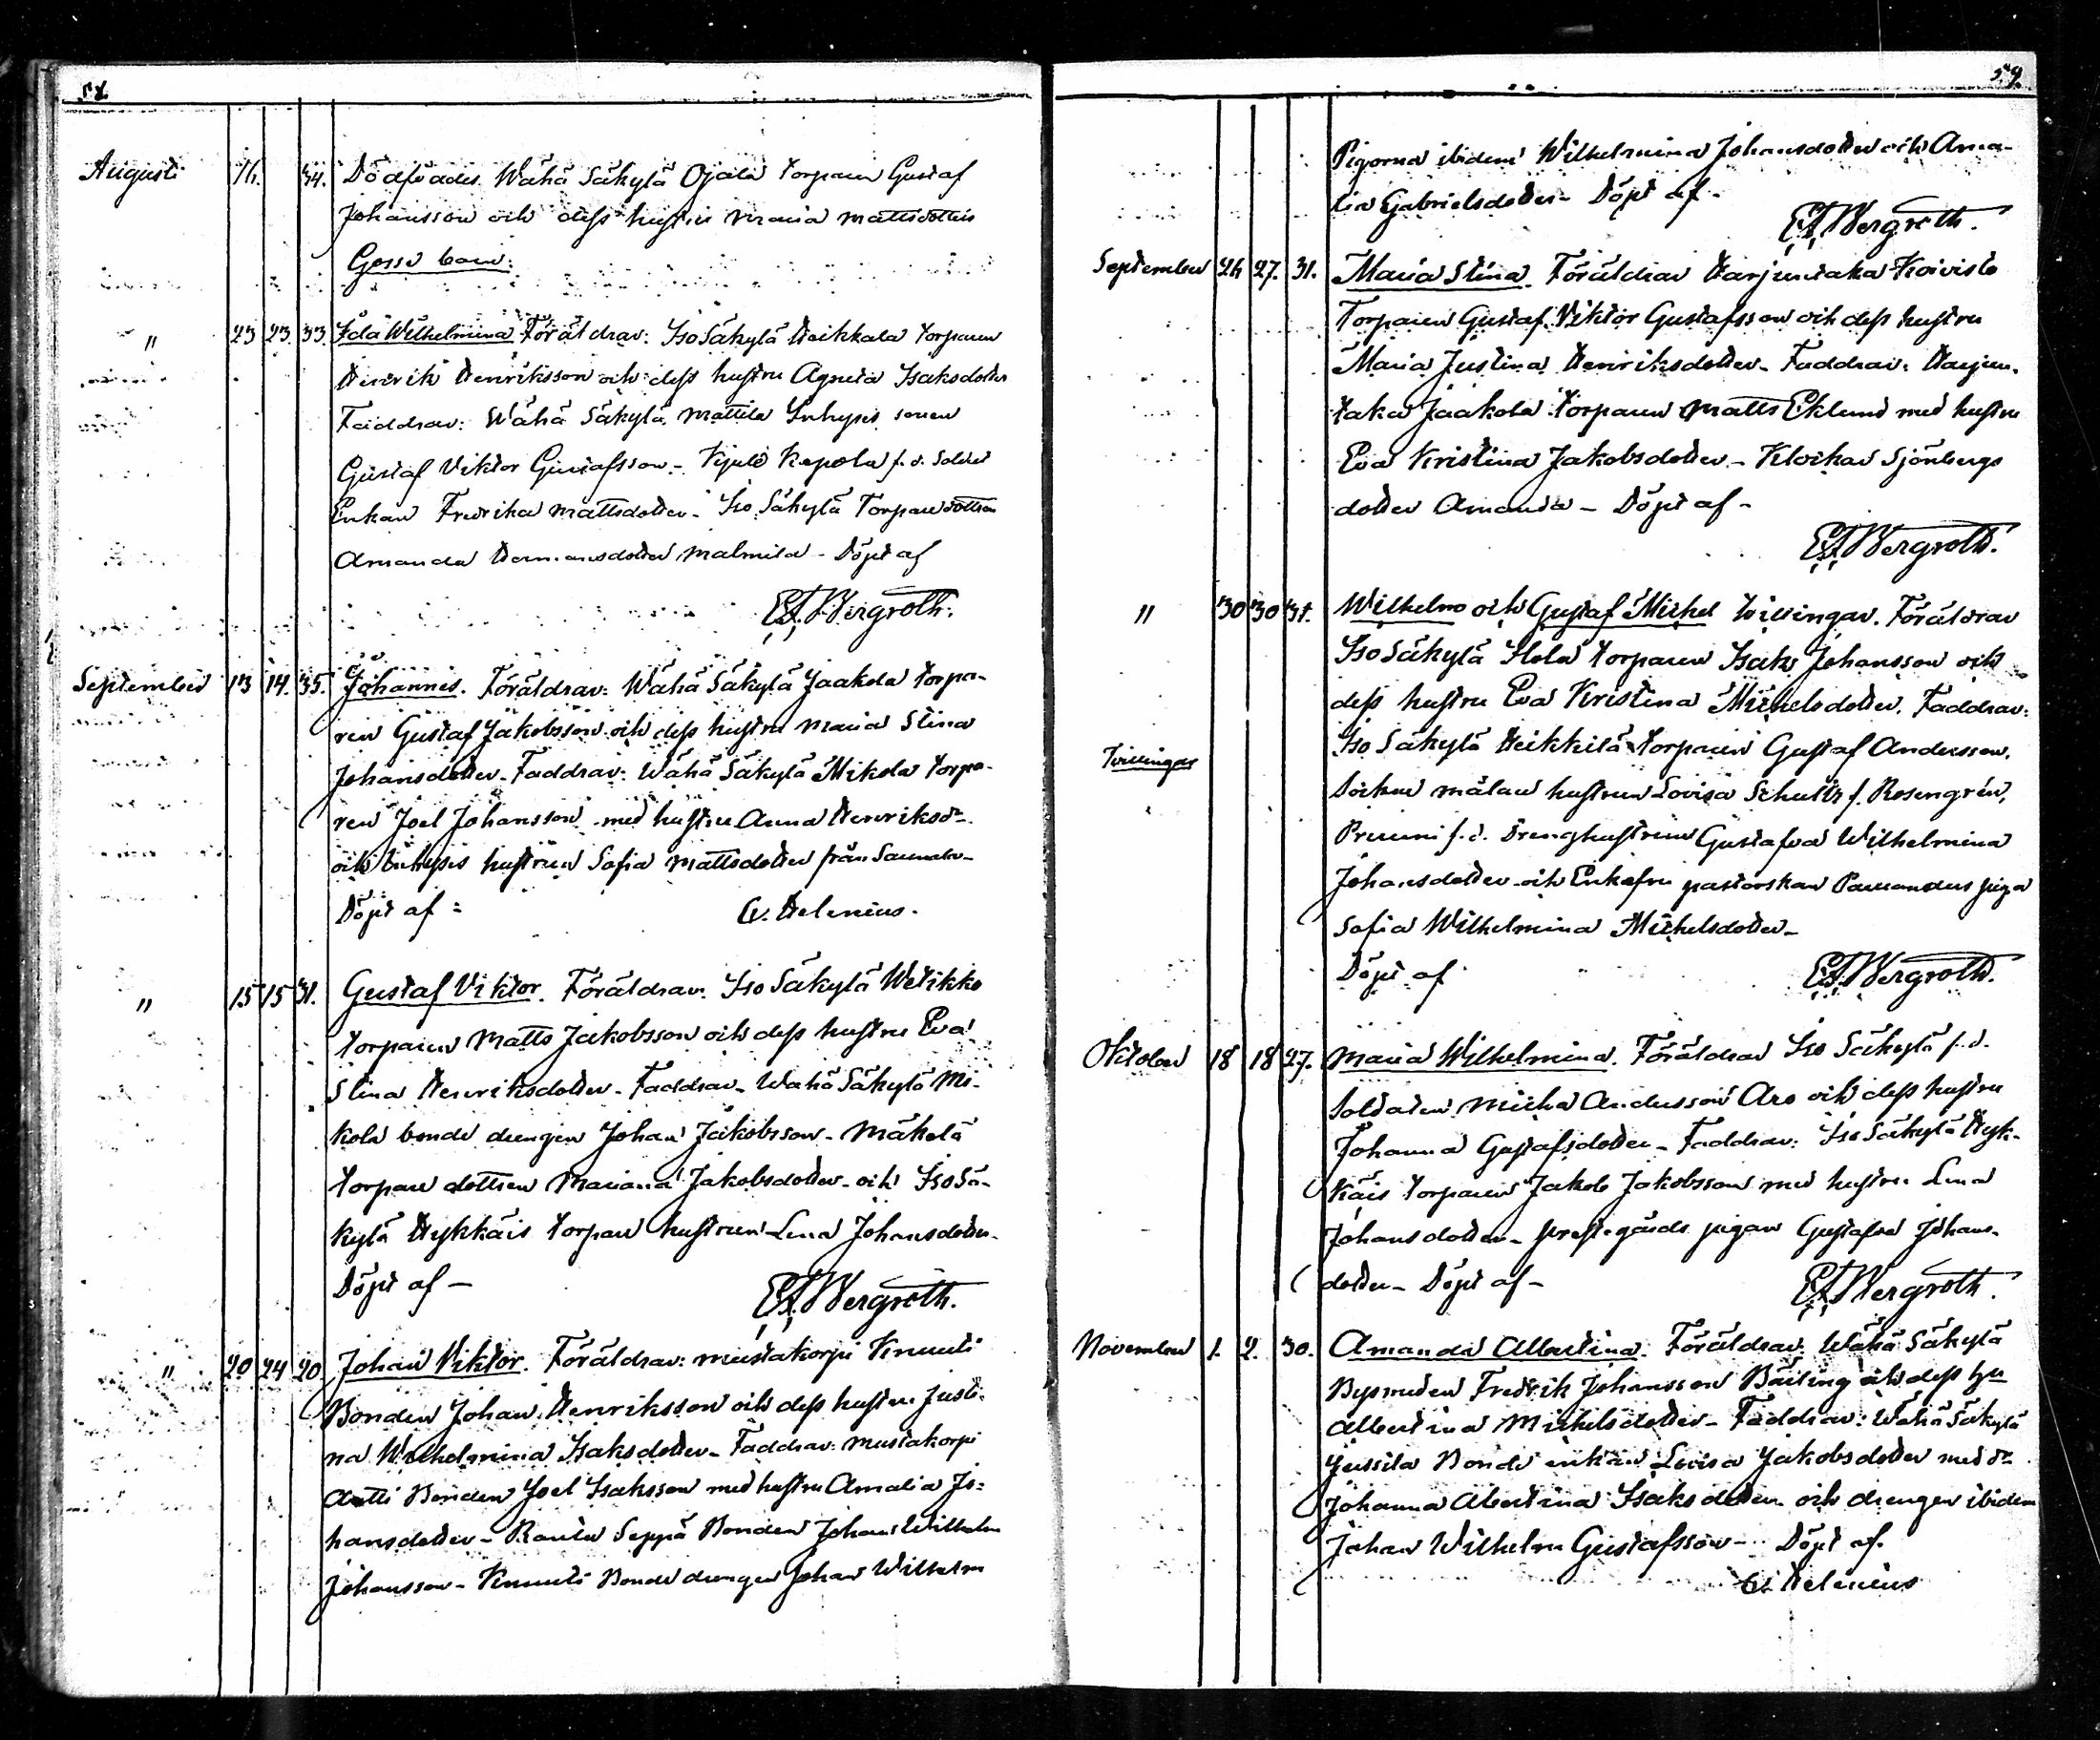 58.
Augusti 16. 34. Dödföddes Wähä Säkylä Ojala torparen Gustaf
Johansson och dess hustru Maria Mattsdotters
Gosse barn.
" 23 23 33. Ida Wilhelmina. Föräldrar: Iso Säkylä Heikkala torparen
Henrik Henriksson och dess hustru Agneta Isaksdotter
Faddrar: Wähä Säkylä Mattila Inhyses sonen
Gustaf Viktor Gustafsson - Kepola f.d. Soldat
Enkan Fredrika Mattsdotter - Iso Säkylä Torpare dottren
Amanda Hermansdotter Malmila - Döpt af
E.A. Bergroth.
September 13 14. 35. Johannes. Föräldrar: Wähä Säkylä Jaakola torpa-
ren Gustaf Jakobsson och dess hustru Maria Stina
Johansdotter. Faddrar: Wähä Säkylä Mikola torpa-
ren Joel Johansson med hustru Anna Henriksdr
och Inhyses hustrun Sofia Mattsdotter från
Döpt af: G. Helenius.
" 15 15 31. Gustaf Viktor. Föräldrar. Iso Säkylä
torparen Matts Jakobsson och dess hustru Eva
Stina Henriksdotter - Faddrar - Wähä Säkylä Mi-
kola bonde drengen Johan Jakobsson - Mäkelä
torpare dottren Mariana Jakobsdotter - och Iso Sä-
kylä Hykkäis torpare hustrun Lena Johansdotter.
Döpt af -
E.A. Bergroth.
" 20 24 20 Johan Viktor. Föräldrar: Mustakorpi Knuuti
Bonden Johan Henriksson och dess hustru Justi-
na Wilhelmina Isaksdotter - Faddrar: Mustakorpi
Antti Bonden Joel Isaksson med hustru Amalia Jo-
hansdotter - Seppä Bonden Johan Wilhelm
Johansson - Knuuti Bonde drengen Johan Wilhelm
59.
Pigorna ibidem Wilhelmina Johansdotter och Ama-
lia Gabrielsdotter - Döpt af -
E.A. Bergroth.
September 26 27. 31. Maria Stina. Föräldrar Harjuntaka Koivisto
Torparen Gustaf Viktor Gustafsson och dess hustru
Maria Justina Henriksdotter - Faddrar: Harjun-
taka Jaakola torparen Matts Eklund med hustru
Eva Kristina Jakobsdotter - Klockar Sjönbergs
dotter Amanda - Döpt af -
E.A. Bergroth.
" 30 30 31. Wilhelm och Gustaf Michel tvillingar. Föräldrar
Iso Säkylä torparen Isak Johansson och
dess hustru Eva Kristina Michelsdotter. Faddrar:
Tvillingar
Iso Säkylä Heikkilä torparen Gustaf Andersson.
Socken målare hustrun Lovisa Schultz f. Rosengrén,
f.d. Drenghustrun Gustafva Wilhelmina
Johansdotter och Enkefru pastorskan piga
Sofia Wilhelmina Michelsdotter -
Döpt af E.A. Bergroth.
Oktober 18 18 27. Maria Wilhelmina. Föräldrar Iso Säkylä f.d.
Soldaten Michel Andersson Aro och dess hustru
Johanna Gustafsdotter - Faddrar: Iso Säkylä Hyk-
käis torparen Jakob Jakobsson med hustru Lena
Johansdotter - prestegårds pigan Gustafva Johans-
dotter - Döpt af -
E.A. Bergroth.
November 1. 2. 30. Amanda Albertina. Föräldrar: Wähä Säkylä
Bysmeden Fredrik Johansson Bäiling och dess hu
Albertina Michelsdotter - Faddrar: Wähä Säkylä
Jussila Bonde enkan Lovisa Jakobsdotter med dr
Johanna Albertina Isaksdotter och drengen ibidem
Johan Wilhelm Gustafsson - Döpt af.
G. Helenius